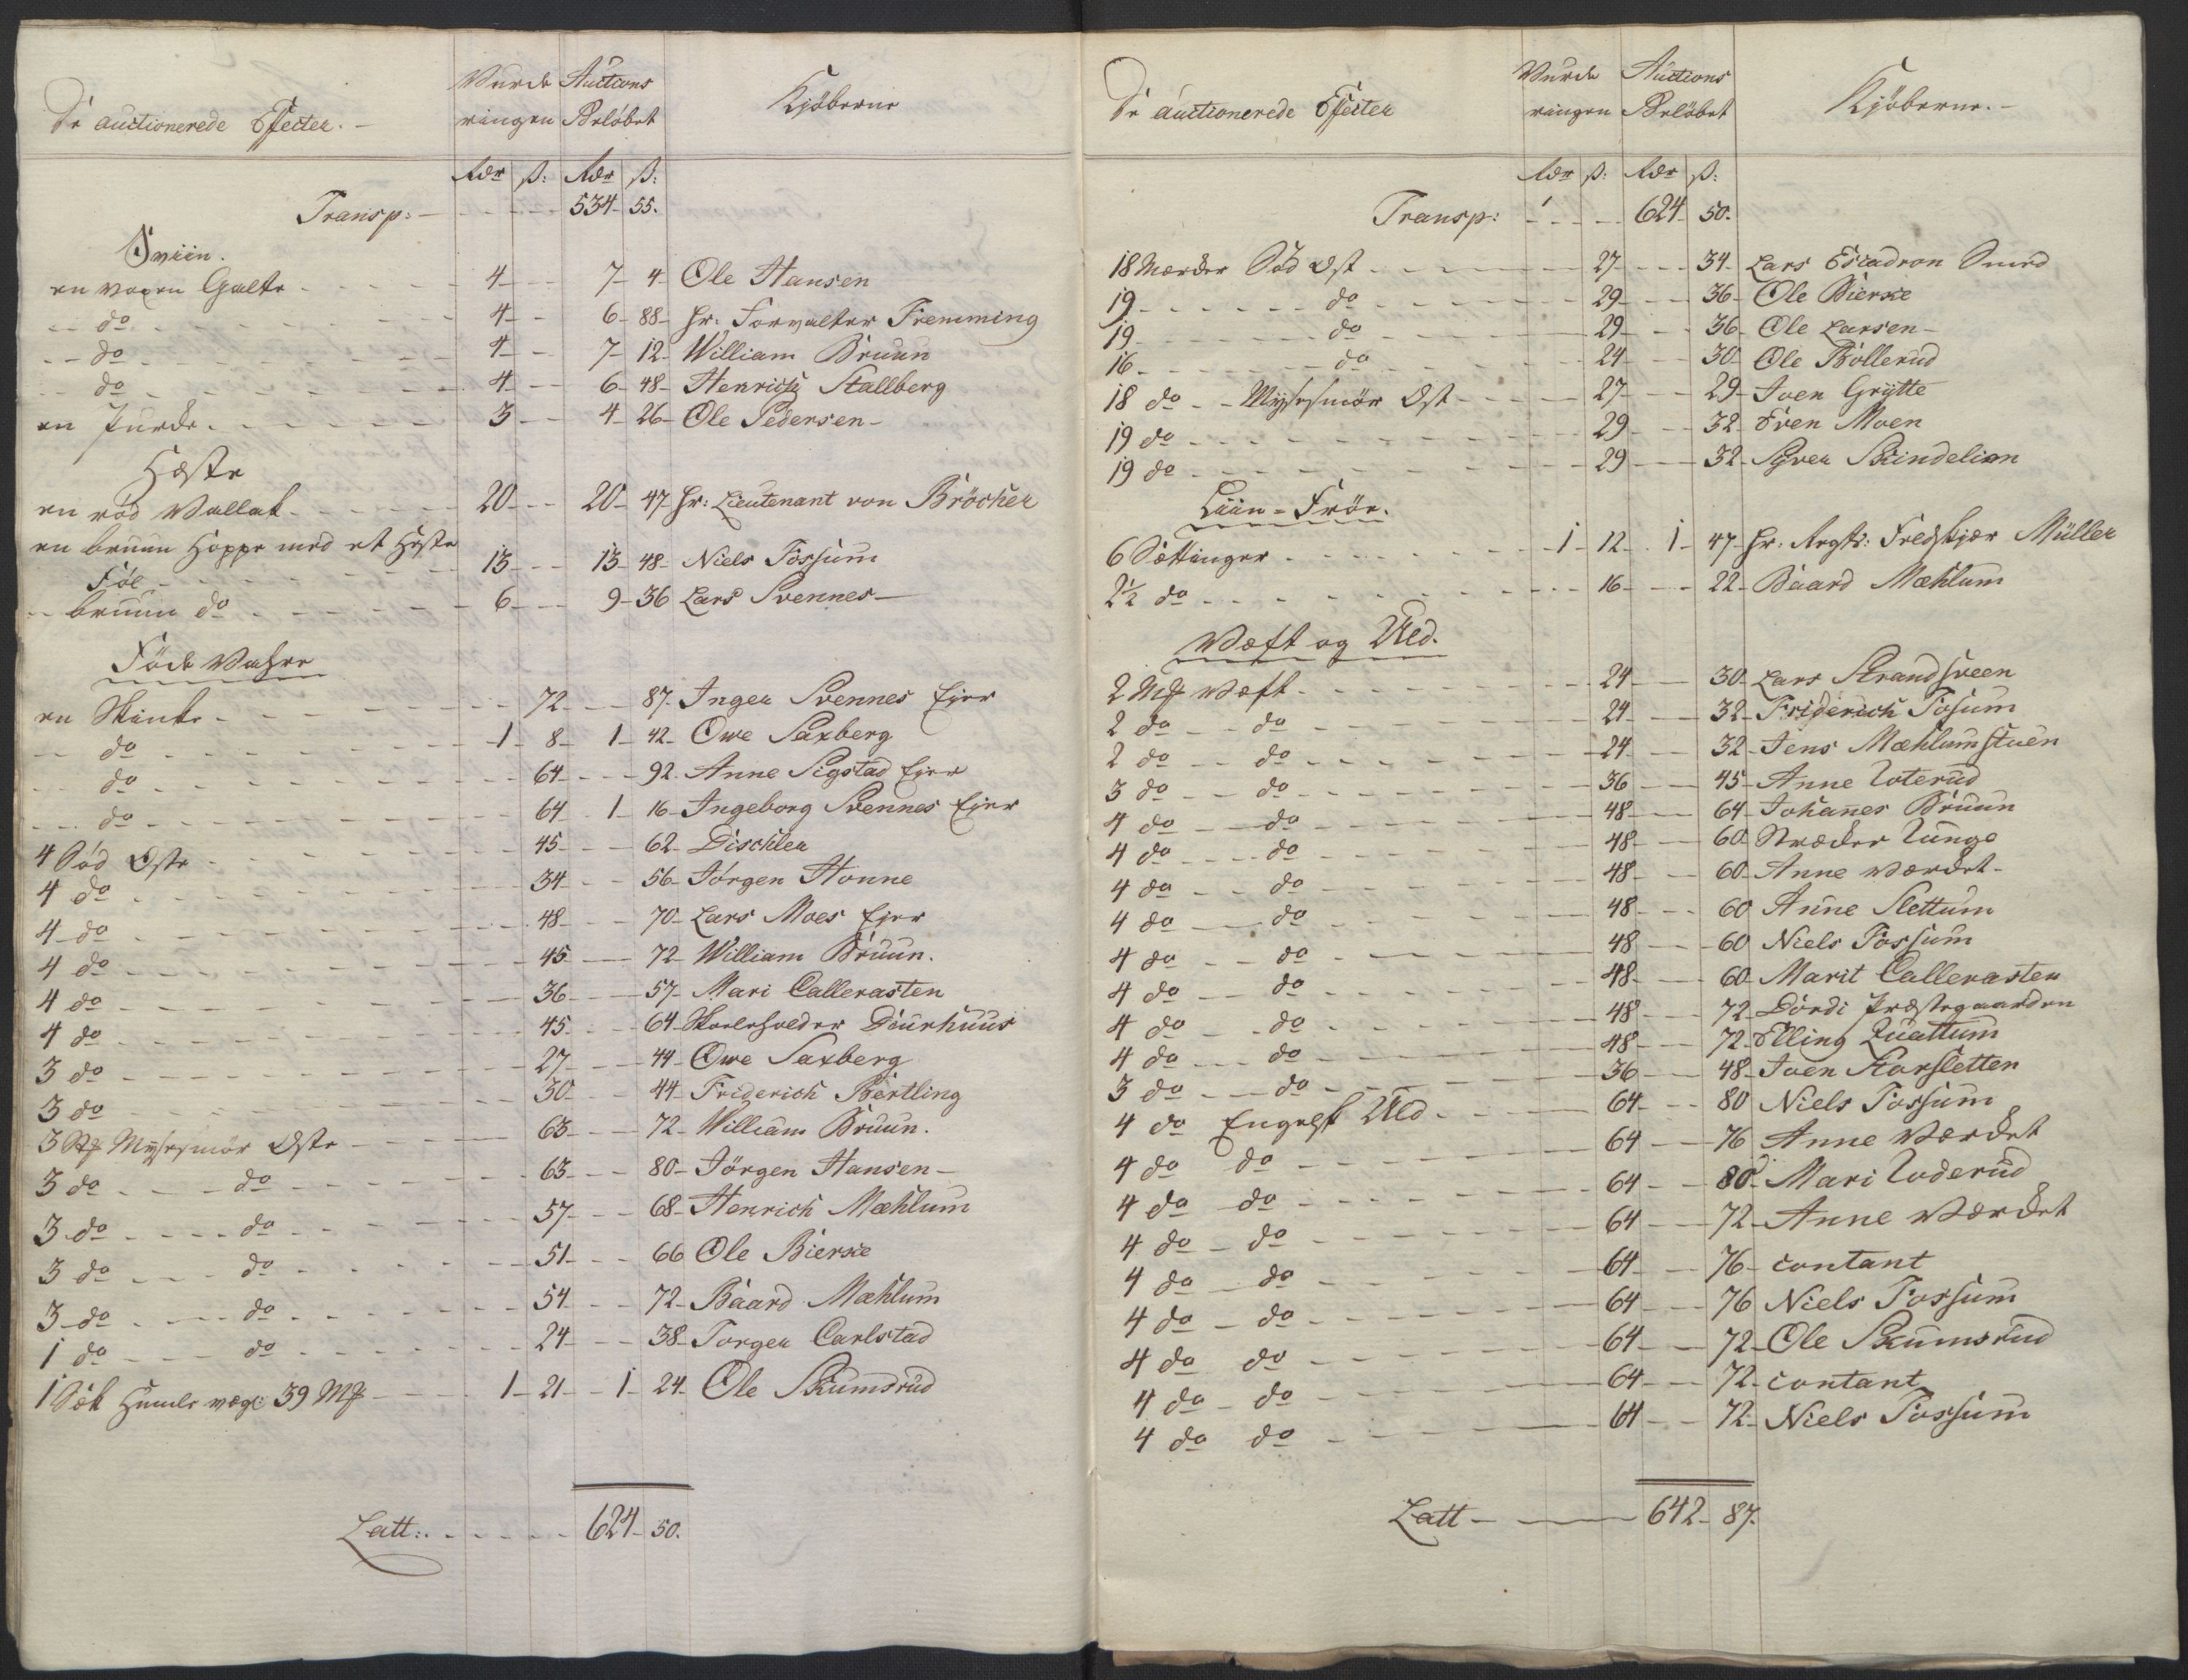 De auctionerede Effecter. -
Vurde Auctions
ringen Beløbet
Kjøberne
Rdr ß: Rdr ß:
Transp: - 534 - 55.
Sviin.
en voxen Galte - 4 - 7 - 4 - Ole Hansen
- do - 4 - 6 - 88 - Hr: Forvalter Fremming
- do - 4 - 7 - 12 - William Bruun
- do - 4 - 6 - 48 - Henrich Stallberg
en Purke - 3 - 4 - 26 - Ole Pedersen -
Heste
en rød Vallak - 20 - 20 - 47 - Hr: Lieutenant von Bröcher
en bruun Hoppe med et Heste
Føl - 13 - 13 - 48 - Niels Fossum
- bruun do - 6 - 9 - 36 Lars Svennes -
Føde Vahre
en Skinke - 72 - 87 - Inger Svennes Eier
- do - 1 - 8 - 1 - 42 - Owe Saxberg
- do - 64 - 92. Anne Sigstad Eier
- do - 64 - 1 - 16 - Ingeborg Svennes Eier
4 Sød Oste - 45 - 62 - Dischler
4 do - 34 - 56 - Jörgen Honne
4 do - 48 - 70 - Lars Moes Eier
4 do - 45 - 72 - William Bruun.
4 do - 36 - 57 - Mari Callerasten
4 do - 45 - 64 - Skoleholder Diurhuus
3 do - 27 - 44 - Owe Saxberg
3 do - 30 - 44 - Friderich Bertling
3 Mysesmör Oste - 63 - 72 - William Bruun.
3 do - do - 63 - 80 - Jörgen Hansen -
3 do - do - 57 - 68 - Henrich Mæhlum
3 do - do - 51 - 66 Ole Bierke
3 do - do - 54 - 72 - Baard Mæhlum
1 do - do - 24 - 38 - Torger Carlstad
1 Sæk Humle veg: 39 - 1 - 21 - 1 - 24 - Ole Skumsrud
Latt: - 624 - 50.
De auctionerede Effecter
Vurde Auctions
ringen Beløbet
Kjøberne. -
Rdr ß: Rdr ß:
Transp: - 624 - 50.
18 Marker Sød Ost - 27 - 34 - Lars Escadron Smed
19 - do - 29 - 36 - Ole Bierke
19 - do - 29 - 36 - Ole Larsen -
16 - do - 24 - 30 Ole Böllerud
18 do - Mysesmör Ost - 27 - 29 - Iven Grytte
19 do - 29 - 32 - Sven Moen
19 do - 29 - 32 - Syver Skindelien
Liin = Frøe.
6 Sættinger - 1 - 12 - 1 - 47 - Hr: Regts: Feldskjær Müller
2½ do - 16 - 22 - Baard Mæhlum
Væft og Uld.
2 Væft - 24 - 30 - Lars Strandsveen
2 do - do - 24 - 32 - Friderich Fosum
2 do - do - 24 - 32 - Jens Mæhlumstuen
3 do - do - 36 - 45 - Anne Loterud
4 do - do - 48 - 64 - Johanes Bruun
4 do - do - 48 - 60 - Skræder Lunge
4 do - do - 48 - 60 - Anne Værdet -
4 do - do - 48 - 60 Anne Slettum
4 do - do - 48 - 60 Niels Fossum
4 do - do - 48 - 60 - Marit Callerasten
4 do - do - 48 - 72 - Dördi Præstegaarden
4 do - do - 48 - 72 - Elling Quattum
3 do - do - 36 - 48 - Iven Korsletten
4 do Engelsk Uld - 64 - 80 Niels Fossum
4 do do - 64 - 76 Anne Værdet
4 do do - 64 - 80 - Mari Loderud
4 do - do - 64 - 72 - Anne Værdet
4 do - do - 64 - 76 - contant
4 do - do - 64 - 76 Niels Fossum
4 do do - 64 - 72 - Ole Skumsrud
4 do - do - 64 - 72 - contant
4 do do - 64 - 72 - Niels Fossum
Latt - 642 - 87.